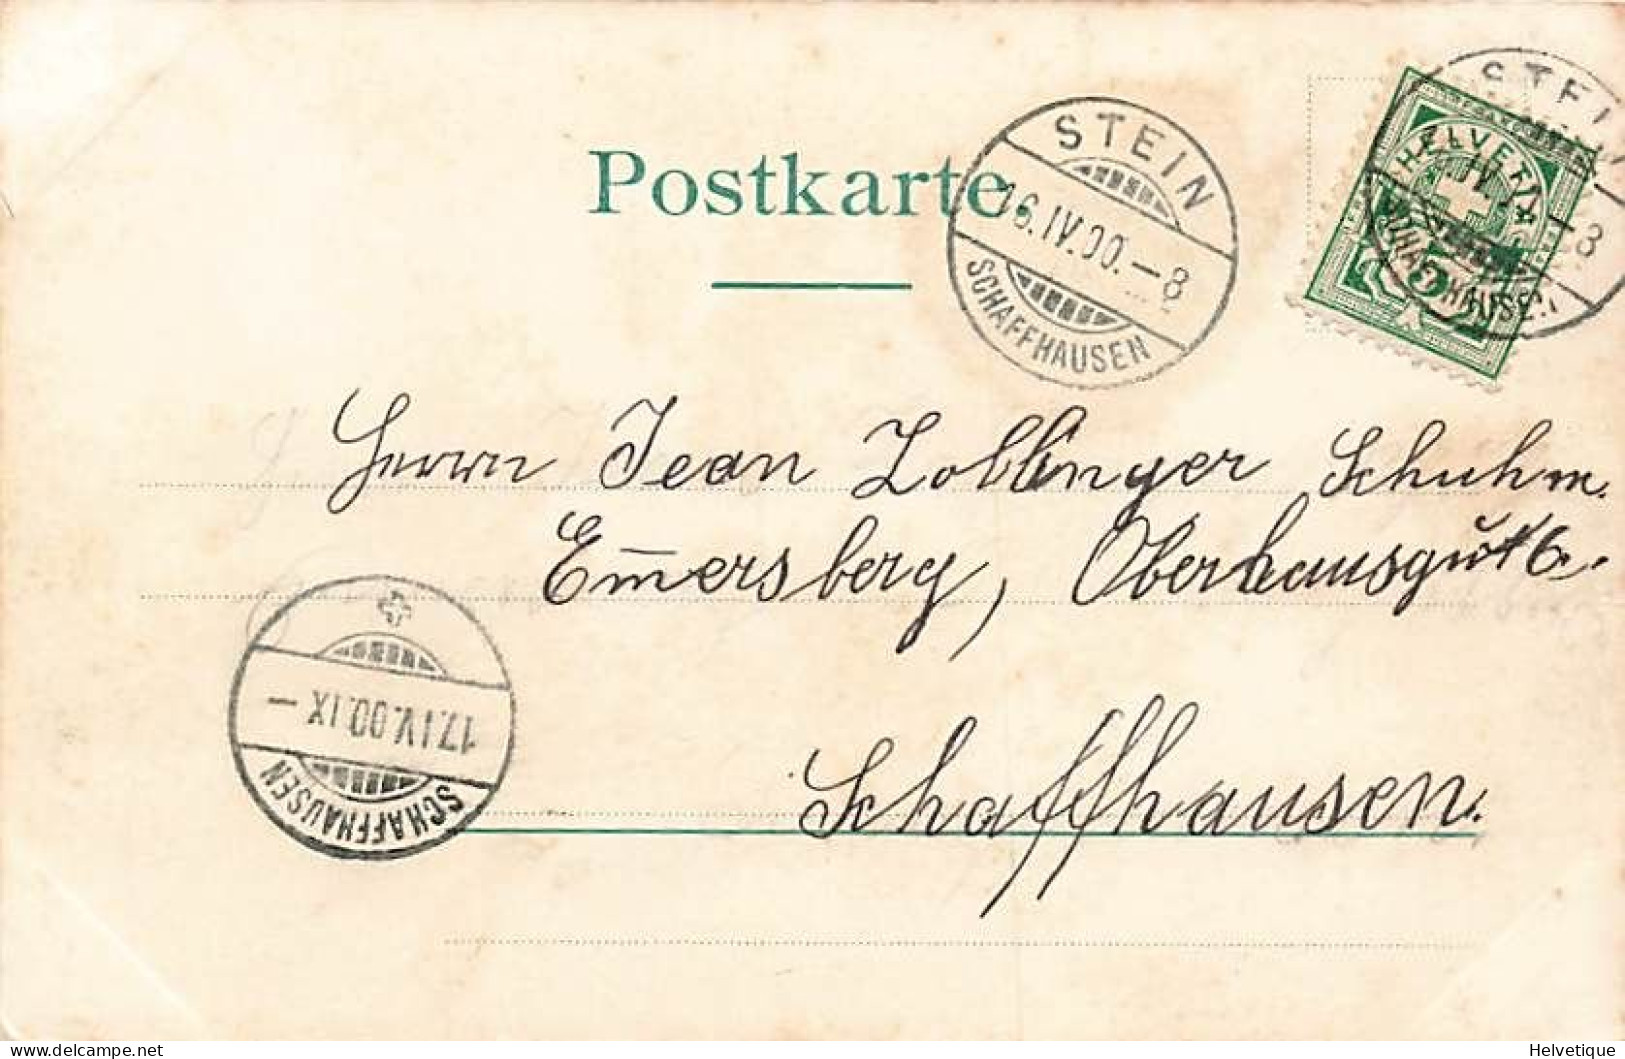 Postkarte
STEIN
16.IV.00.–8
SCHAFFHAUSEN
STEIN
IV
–8
SCHAFFHAUSEN
HELVETIA
Herrn Jean Zollinger Schuhm.
Em̄ersberg, Oberhausgütli.
17.IV.00.IX –
SCHAFFHAUSEN
Schaffhausen.
www.delcampe.net
Helvetique